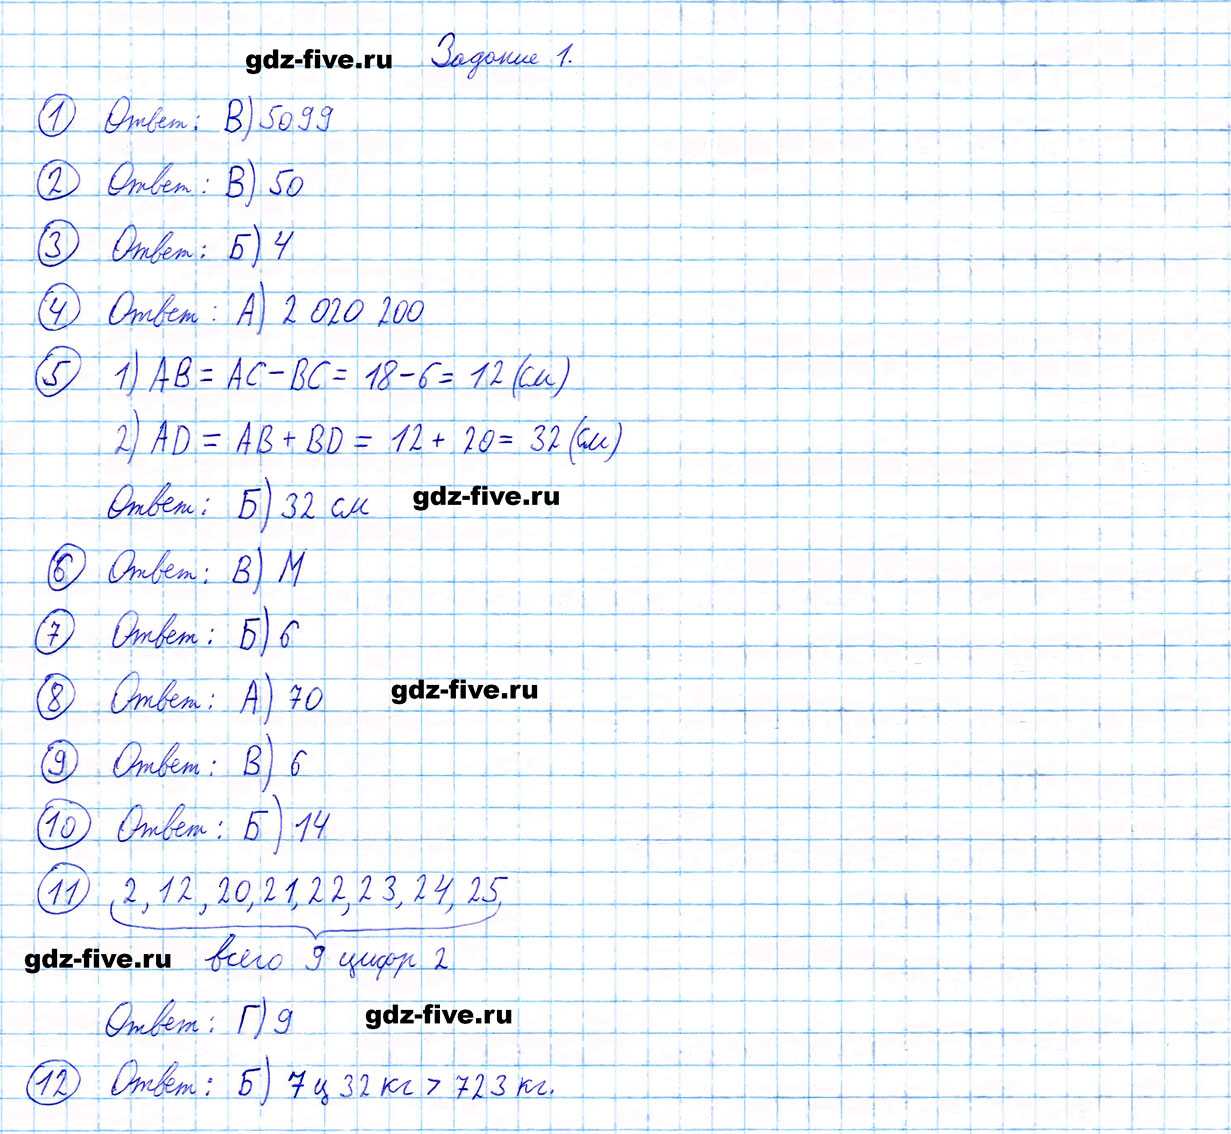 gdz-five.ru Задание 1.
1 Ответ: В) 5099
2 Ответ: В) 50
3 Ответ: Б) 4
4 Ответ: А) 2 020 200
5 1) AB = AC - BC = 18 - 6 = 12 (см)
2) AD = AB + BD = 12 + 20 = 32 (см)
Ответ: Б) 32 см gdz-five.ru
6 Ответ: В) М
7 Ответ: Б) 6
8 Ответ: А) 70 gdz-five.ru
9 Ответ: В) 6
10 Ответ: Б) 14
11 2, 12, 20, 21, 22, 23, 24, 25,
gdz-five.ru всего 9 цифр 2
Ответ: Г) 9 gdz-five.ru
12 Ответ: Б) 7 ц 32 кг > 723 кг.